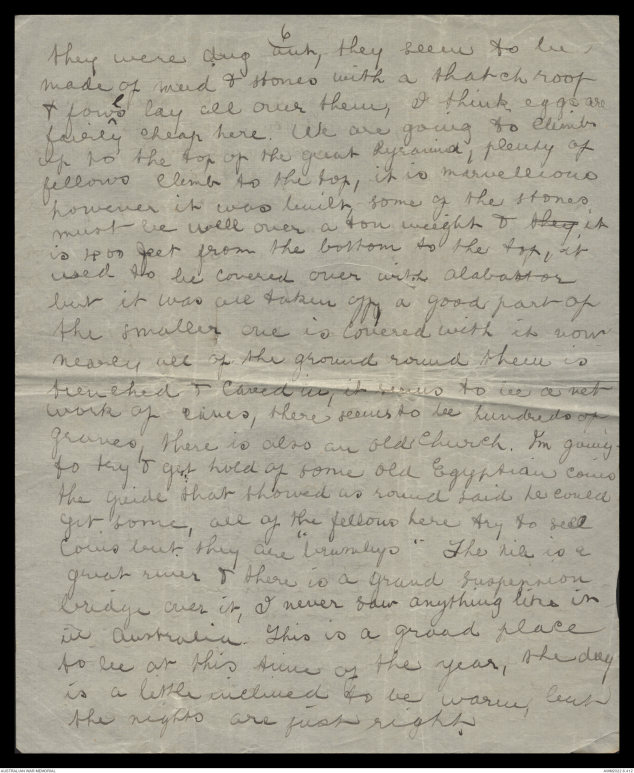 6
they were dug out, they seem to be
made of mud & stones with a thatch roof
& fowls lay all over them, I think eggs are
fairly cheap here. We are going to climb
up to the top of the great Pyramid, plenty of
fellows climb to the top, it is marvellious
however it was built, some of the stones
must be well over a ton weight & they it
is feet from the bottom to the top, it
used to be covered over with alabastor
but it was all taken off, a good part of
the smaller one is covered with it now
nearly all of the ground round them is
trenched & caved in, it seems to be a net
work of caves, there seems to be hundreds of
graves, there is also an old Church. I'm going
to try & get hold of some old Egyptian coins
the guide that showed us round said he could
get some, all of the fellows here try to sell
coins but they are "brumbys" The nile is a
great river & there is a grand suspension
bridge over it, I never saw anything like it
in Australia. This is a grand place
to be at this time of the year, the day
is a little inclined to be warm, but
the nights are just right.
AUSTRALIAN WAR MEMORIAL